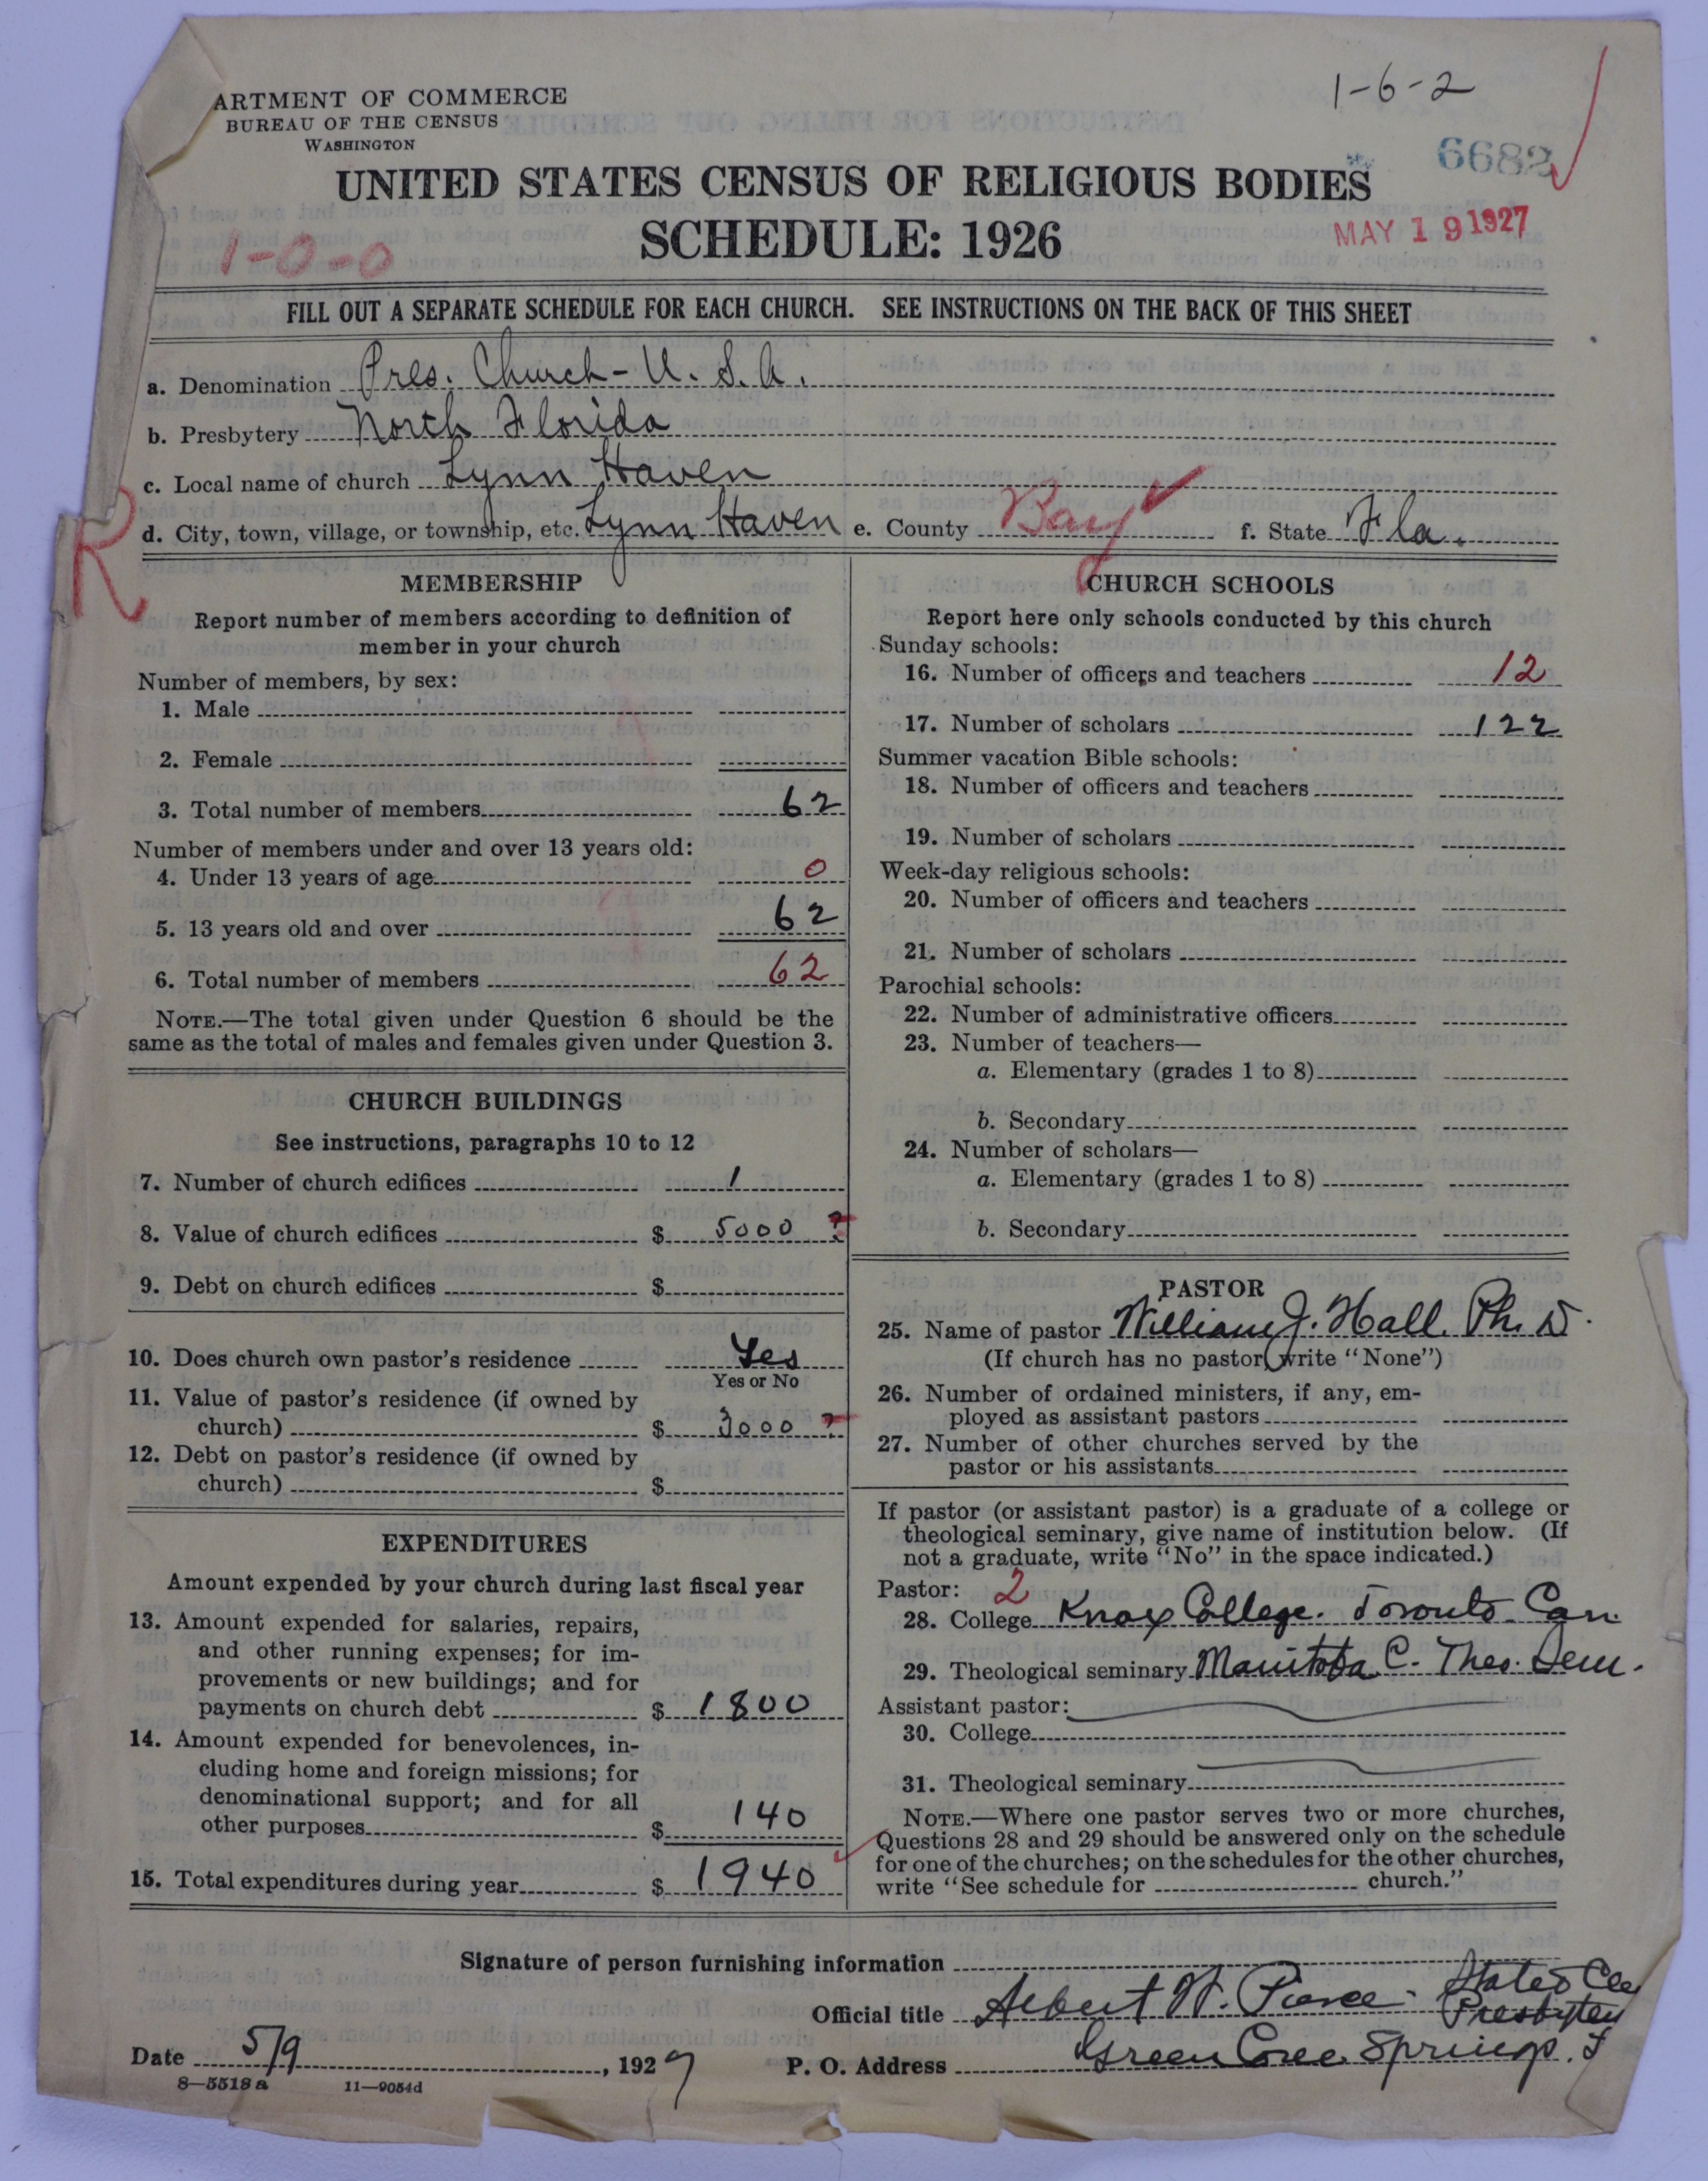 1-6-2
ARTMENT OF COMMERCE
BUREAU OF THE CENSUS
WASHINGTON
6682
UNITED STATES CENSUS OF RELIGIOUS BODIES
SCHEDULE: 1926
MAY 19 1927
1-0-0
FILL OUT A SEPARATE SCHEDULE FOR EACH CHURCH. SEE INSTRUCTIONS ON THE BACK OF THIS SHEET
a. Denomination Pres. Church - U.S.A.
b. Presbytery North Florida
c. Local name of church Lynn Haven
d. City, town, village, or township, etc. Lynn Haven e. County Bay f. State Fla.
R
MEMBERSHIP
Report number of members according to definition of
member in your church
Number of members, by sex:
1. Male
2. Female
3. Total number of members 62
Number of members under and over 13 years old:
4. Under 13 years of age 0
5. 13 years old and over 62
6. Total number of members 62
NOTE.—The total given under Question 6 should be the
same as the total of males and females given under Question 3.
CHURCH BUILDINGS
See instructions, paragraphs 10 to 12
7. Number of church edifices 1
8. Value of church edifices $ 5000 ?
9. Debt on church edifices $
10. Does church own pastor's residence Yes
Yes or No
11. Value of pastor's residence (if owned by
church) $ 3000 ?
12. Debt on pastor's residence (if owned by
church) $
EXPENDITURES
Amount expended by your church during last fiscal year
13. Amount expended for salaries, repairs,
and other running expenses; for im-
provements or new buildings; and for
payments on church debt $ 1800
14. Amount expended for benevolences, in-
cluding home and foreign missions; for
denominational support; and for all
other purposes $ 140
15. Total expenditures during year $ 1940
CHURCH SCHOOLS
Report here only schools conducted by this church
Sunday schools:
16. Number of officers and teachers 12
17. Number of scholars 122
Summer vacation Bible schools:
18. Number of officers and teachers
19. Number of scholars
Week-day religious schools:
20. Number of officers and teachers
21. Number of scholars
Parochial schools:
22. Number of administrative officers
23. Number of teachers—
a. Elementary (grades 1 to 8)
b. Secondary
24. Number of scholars—
a. Elementary (grades 1 to 8)
b. Secondary
PASTOR
25. Name of pastor William J. Hall. Ph. D.
(If church has no pastor write "None")
26. Number of ordained ministers, if any, em-
ployed as assistant pastors
27. Number of other churches served by the
pastor or his assistants
If pastor (or assistant pastor) is a graduate of a college or
theological seminary, give name of institution below. (If
not a graduate, write "No" in the space indicated.)
Pastor: 2
28. College Knox College. Toronto Can.
29. Theological seminary Manitoba C. Theo. Sem.
Assistant pastor:
30. College
31. Theological seminary
NOTE.—Where one pastor serves two or more churches,
Questions 28 and 29 should be answered only on the schedule
for one of the churches; on the schedules for the other churches,
write "See schedule for church."
Signature of person furnishing information
Official title Albert W. Pierce. Stated Cle
Presbytery
Date 5/9, 1927 P. O. Address Green Cove Springs. F
8—5518a 11—9054d